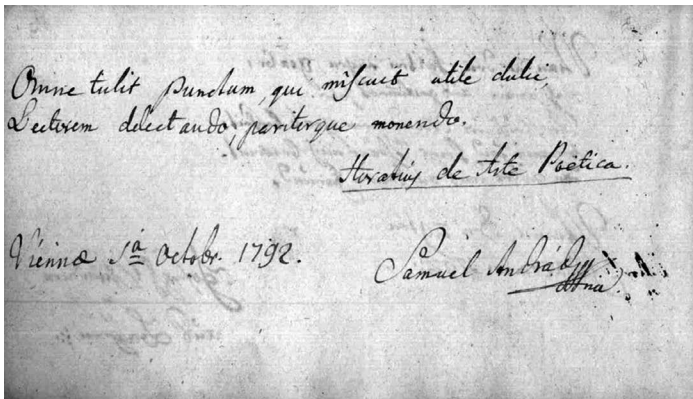 Omne tulit punctum, qui miscuit utile dulci,
Lectorem delectando, pariterque monendo.
Horatius de Arte Poëtica.
Viennæ 1a Octobr. 1792.
Samuel Andrád